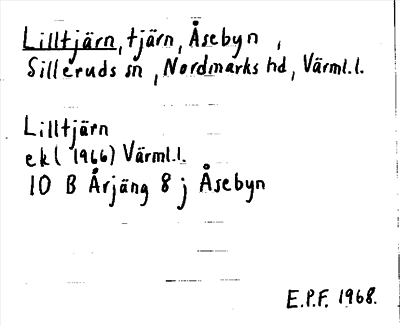 Lilltjärn, tjärn, Åsebyn,
Silleruds sn, Nordmarks hd, Värml.l.
Lilltjärn
ekl (1966) Värml.l.
10 B Årjäng 8 j Åsebyn
E.P.F. 1968.